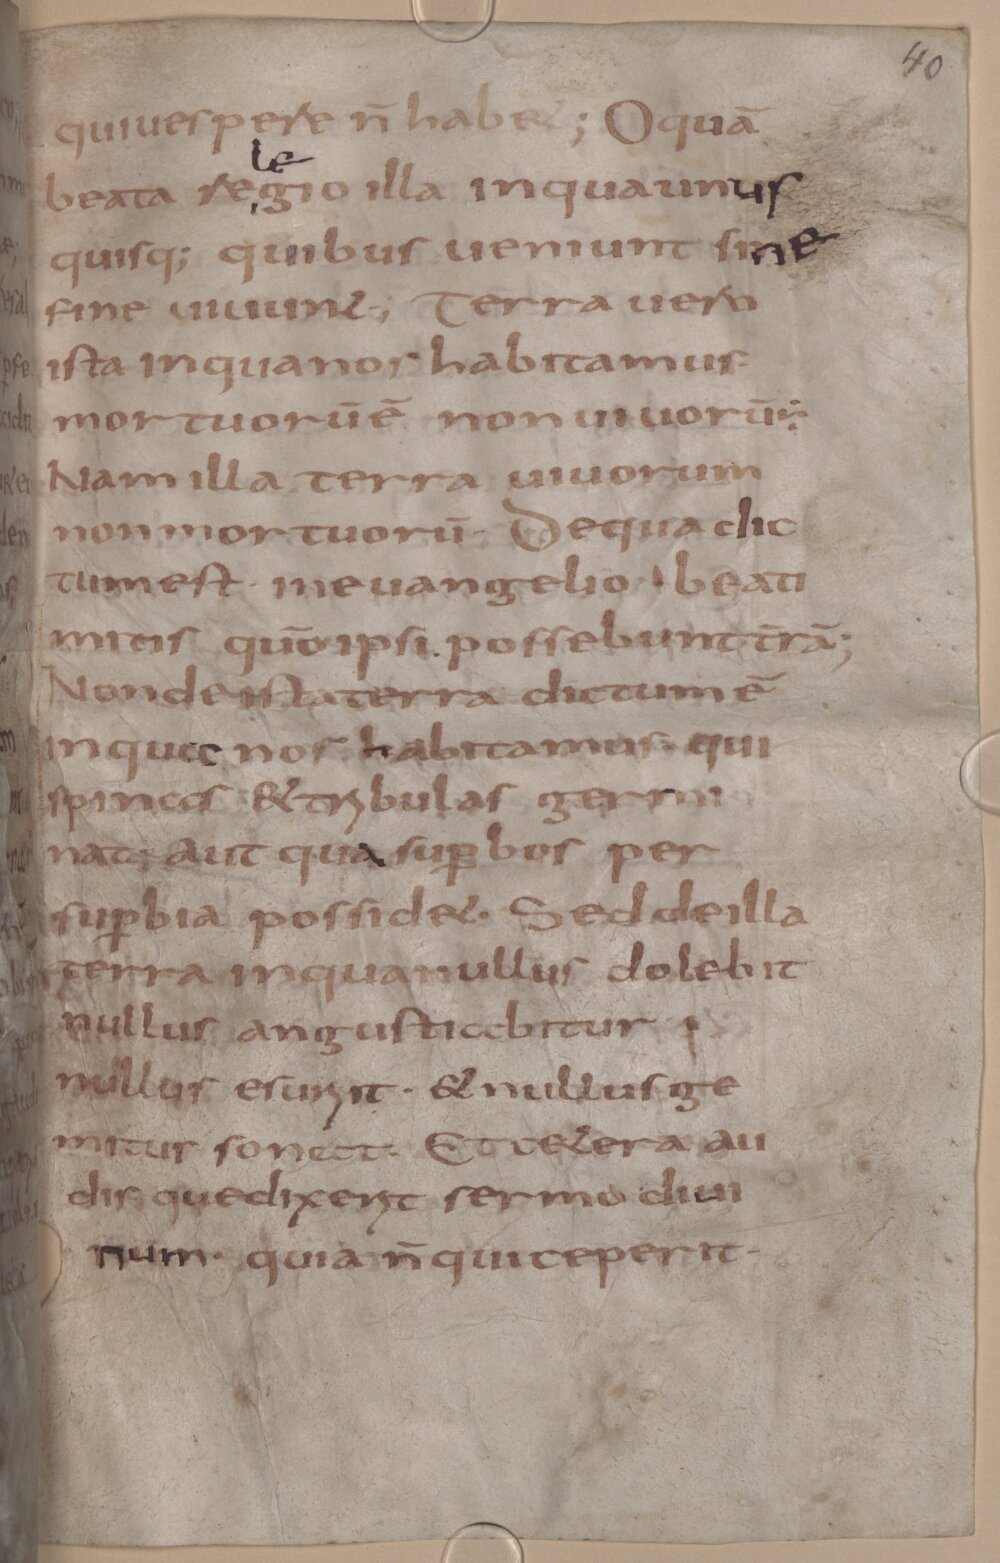 40
qui uespere n̄ hab&; O quā
beata re,gio illa inqua unus
le
quisq; quibus ueniunt sine
fine uiuun&; Terra uero
ista inqua nos habitamus·
mortuorū ē non uiuorū;
Nam illa terra uiuorum
non mortuorū· De qua dic
tum est· in euangelio· beati
mitis quō ipsi possebunt t̄rā;
Non de ista terra dictum ē
in qua nos habitamus· qui
spinas & tribulas germi
nat; aut qua suꝑbos per
suꝑbia possid&· Sed de illa
terra in qua nullus dolebit
nullus angustiabitur
nullus esurit· & nullus ge
mitus sonat· Et c&era au
dis que dixerit sermo diui
num· quia n̄ qui ceperit·